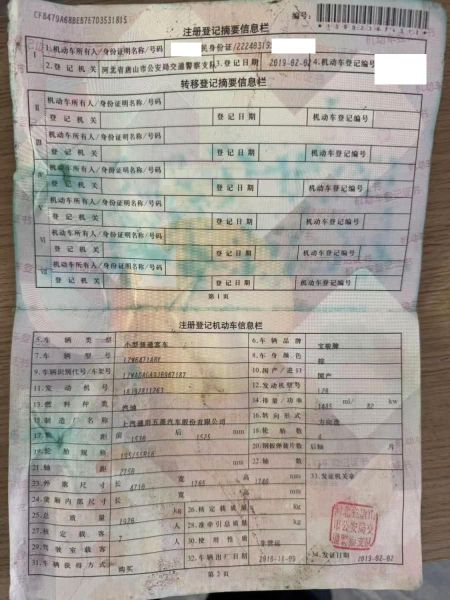 注册登记摘要信息栏
编号:
I 1.机动车所有人/身份证明名称/号码 民身份证/
2.登 记 机 关 河北省唐山市公安局交通警察支队 3.登记日期 2019-02-02 4.机动车登记编号
转移登记摘要信息栏
II 机动车所有人/身份证明名称/号码
登 记 机 关 登记日期 机动车登记编号
机动车所有人/身份证明名称/号码
登 记 机 关 登记日期 机动车登记编号
机动车所有人/身份证明名称/号码
登 记 机 关 登记日期 机动车登记编号
V 机动车所有人/身份证明名称/号码
登 记 机 关 登记日期 机动车登记编号
VI 机动车所有人/身份证明名称/号码
登 记 机 关 登记日期 机动车登记编号
VII 机动车所有人/身份证明名称/号码
登 记 机 关 登记日期 机动车登记编号
第 1 页
注册登记机动车信息栏
5.车 辆 类 型 小型普通客车 6.车 辆 品 牌 宝骏牌
7.车 辆 型 号 8.车 身 颜 色 棕
9.车辆识别代号/车架号 10.国产/进口 国产
11.发 动 机 号 12.发动机型号
13.燃 料 种 类 汽油 14.排量/功率 ml/ kw
15.制 造 厂 名 称 上汽通用五菱汽车股份有限公司 16.转 向 形 式 方向盘
17.轮 距 前 后 1525 mm 18.轮 胎 数
19.轮 胎 规 格 195/55R16 20.钢板弹簧片数 后轴 片
21.轴 距 2750 mm 22.轴 数
23.外 廓 尺 寸 长 4710 宽 高 mm 33.发证机关章
24.货厢内部尺寸 长 宽 高 mm
25.总 质 量 kg 26.核定载质量 kg
27.核 定 载 客 7 人 28.准牵引总质量 kg
29.驾 驶 室 载 客 人 30.使 用 性 质 非营运
31.车辆获得方式 购买 32.车辆出厂日期 34.发证日期 2019-02-02
第 2 页